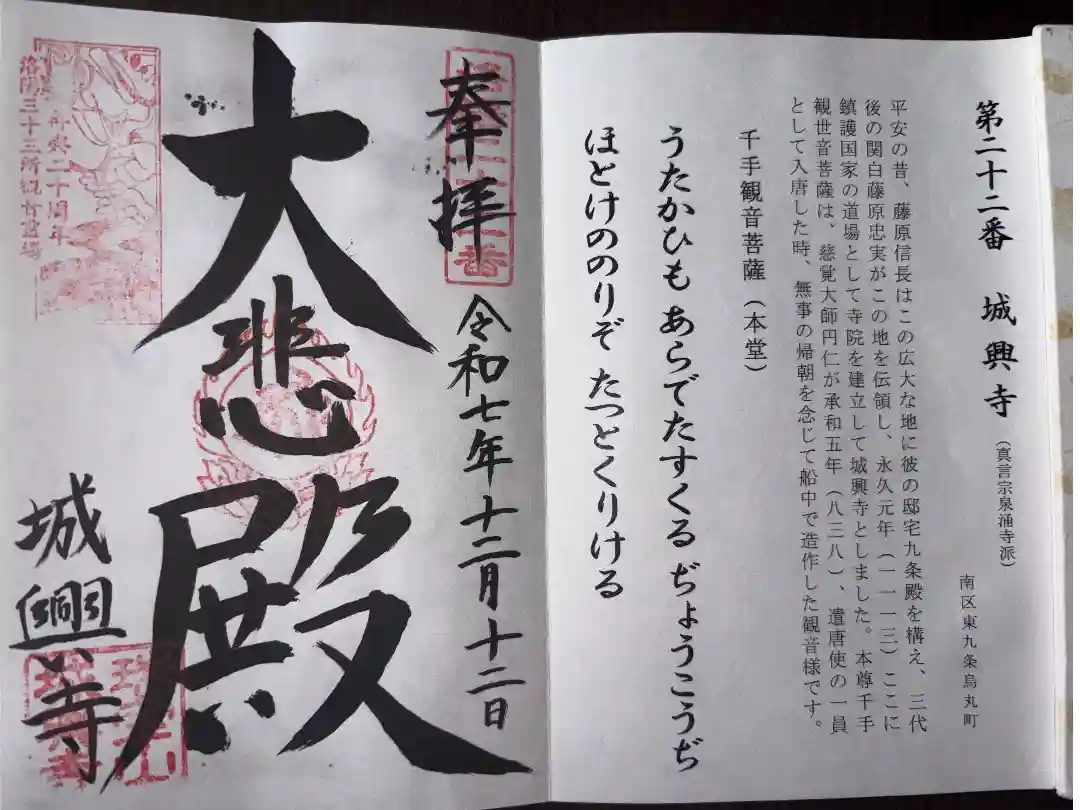 第二十二番　城興寺（真言宗泉涌寺派）
南区東九条烏丸町
平安の昔、藤原信長はこの広大な地に彼の邸宅九条殿を構え、三代
後の関白藤原忠実がこの地を伝領し、永久元年（一一一三）ここに
鎮護国家の道場として寺院を建立して城興寺としました。本尊千手
観世音菩薩は、慈覚大師円仁が承和五年（八三八）、遣唐使の一員
として入唐した時、無事の帰朝を念じて船中で造作した観音様です。
千手観音菩薩（本堂）
うたかひも あらでたすくる ぢようこうぢ
ほとけののりぞ たつとくりける
奉拝
令和七年十二月十二日
大悲殿
城興寺
再興二十周年
洛陽三十三所観音霊場